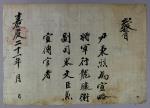 尹東 為宣略
將軍行龍驤衛
副司果文臣兼
宣傳官者
嘉慶二十年 月 日